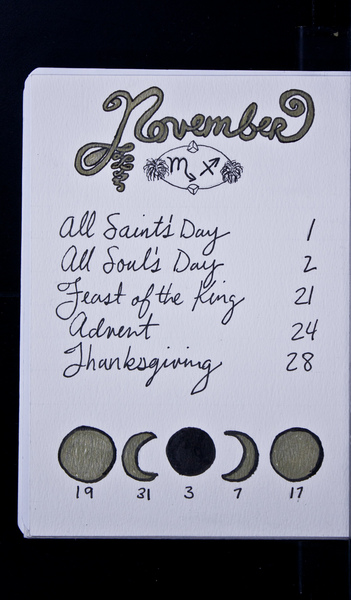 November
♏ ♐
All Saint's Day 1
All Soul's Day 2
Feast of the King 21
Advent 24
Thanksgiving 28
19 31 3 7 17